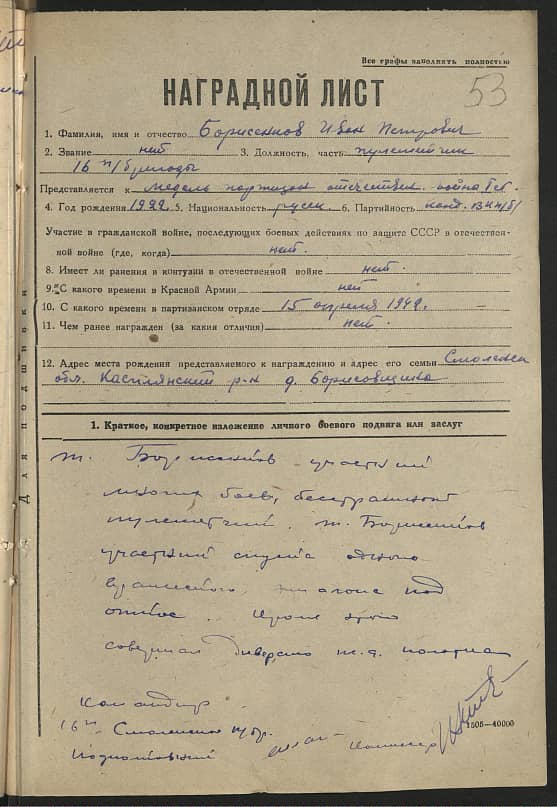 Все графы заполнять полностью
53
НАГРАДНОЙ ЛИСТ
1. Фамилия, имя и отчество Борисенков Иван Петрович
2. Звание нет 3. Должность, часть пулеметчик
16 п/бригады
Представляется к медаль партизан отечествен. война
4. Год рождения 1922 5. Национальность русск 6. Партийность канд. ВКП/б/
Участие в гражданской войне, последующих боевых действиях по защите СССР в отечествен-
ной войне (где, когда) нет.
8. Имеет ли ранения и контузии в отечественной войне нет.
9. С какого времени в Красной Армии нет
10. С какого времени в партизанском отряде 15 апреля 1942.
11. Чем ранее награжден (за какия отличия) нет.
12. Адрес места рождения представляемого к награждению и адрес его семьи Смоленск
обл. Касплянский р-н д. Борисовщина
Для подшивки
1. Краткое, конкретное изложение личного боевого подвига или заслуг
т. Борисенков участник
многих боев, бесстрашный
пулеметчик. т. Борисенков
участник спуска одного
вражеского эшелона под
откос. Кроме этого
совершал диверсию ж.д. полотна
Командир
16й Смоленской п/бр.
Комиссар
1505—40000